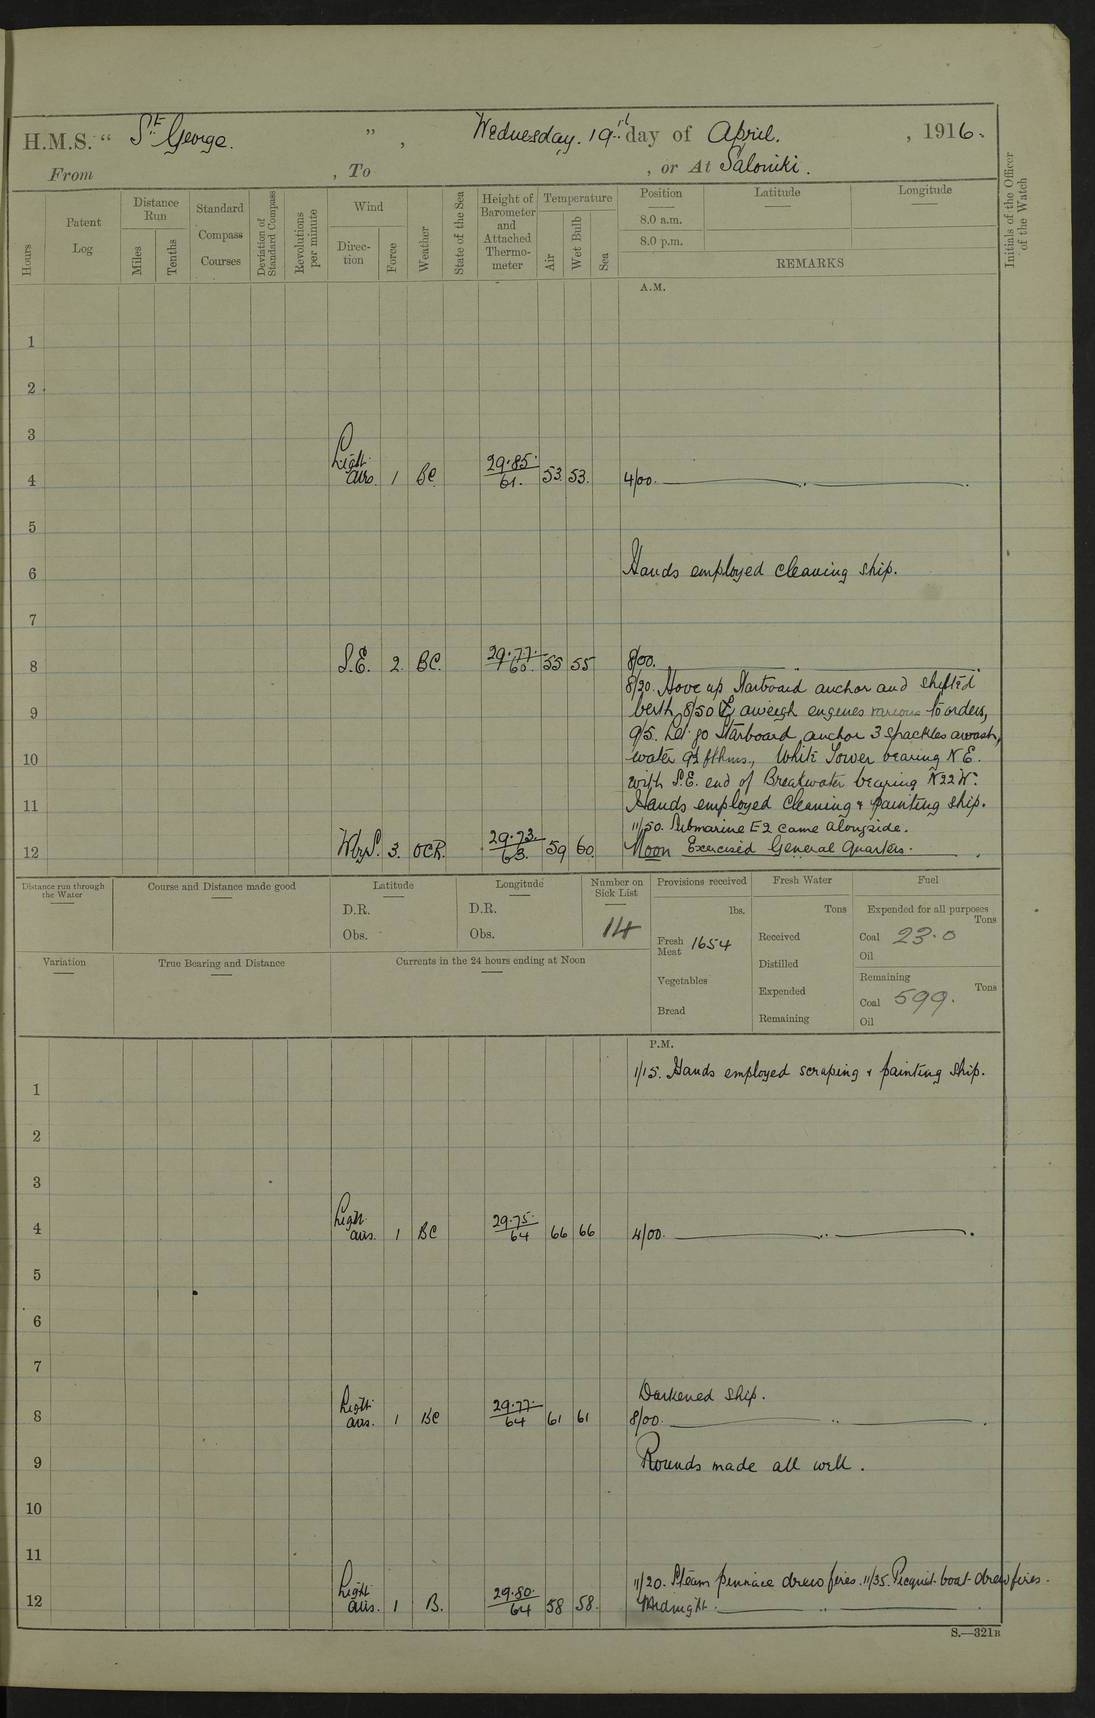 H.M.S. “ St George. ” , Wednesday. 19th day of April. , 1916.
From , To , or At Saloniki.
Hours
Patent Log
Distance Run
Miles
Tenths
Standard Compass Courses
Deviation of Standard Compass
Revolutions per minute
Wind
Direction
Force
Weather
State of the Sea
Height of Barometer and Attached Thermometer
Temperature
Air
Wet Bulb
Sea
Position
8.0 a.m.
8.0 p.m.
Latitude
Longitude
REMARKS
Initials of the Officer of the Watch
A.M.
1
2
3
4 Light airs. 1 BC 29.85. 61. 53. 53. 4/00.
5
6 Hands employed cleaning ship.
7
8 S.E. 2. BC. 29.77. 60. 55 55 8/00.
8/20. Hove up Starboard anchor and shifted
9 berth, 8/50 aweigh engines various to orders,
9/5. Let go Starboard anchor 3 shackles awash,
10 water 9½ fthms., White Tower bearing N E.
with S.E. end of Breakwater bearing N22W.
11 Hands employed cleaning & painting ship.
11/50. Submarine E2 came alongside.
12 3. OCR. 29.73. 63. 59 60. Noon Exercised General Quarters.
Distance run through the Water
Course and Distance made good
Latitude
D.R.
Obs.
Longitude
D.R.
Obs.
Number on Sick List
14
Provisions received
lbs.
Fresh Meat 1654
Vegetables
Bread
Fresh Water
Tons
Received
Distilled
Expended
Remaining
Fuel
Expended for all purposes
Tons
Coal 23.0
Oil
Remaining
Tons
Coal 599.
Oil
Variation
True Bearing and Distance
Currents in the 24 hours ending at Noon
P.M.
1/15. Hands employed scraping & painting ship.
1
2
3
4 Light airs. 1 BC 29.75. 64 66 66 4/00.
5
6
7
Darkened ship.
8 Light airs. 1 BC 29.77. 64 61 61 8/00.
9 Rounds made all well.
10
11
11/20. Steam pinnace drew fires. 11/35. Picquet boat drew fires.
12 Light airs. 1 B. 29.80. 64 58 58. Midnight.
S.—321B